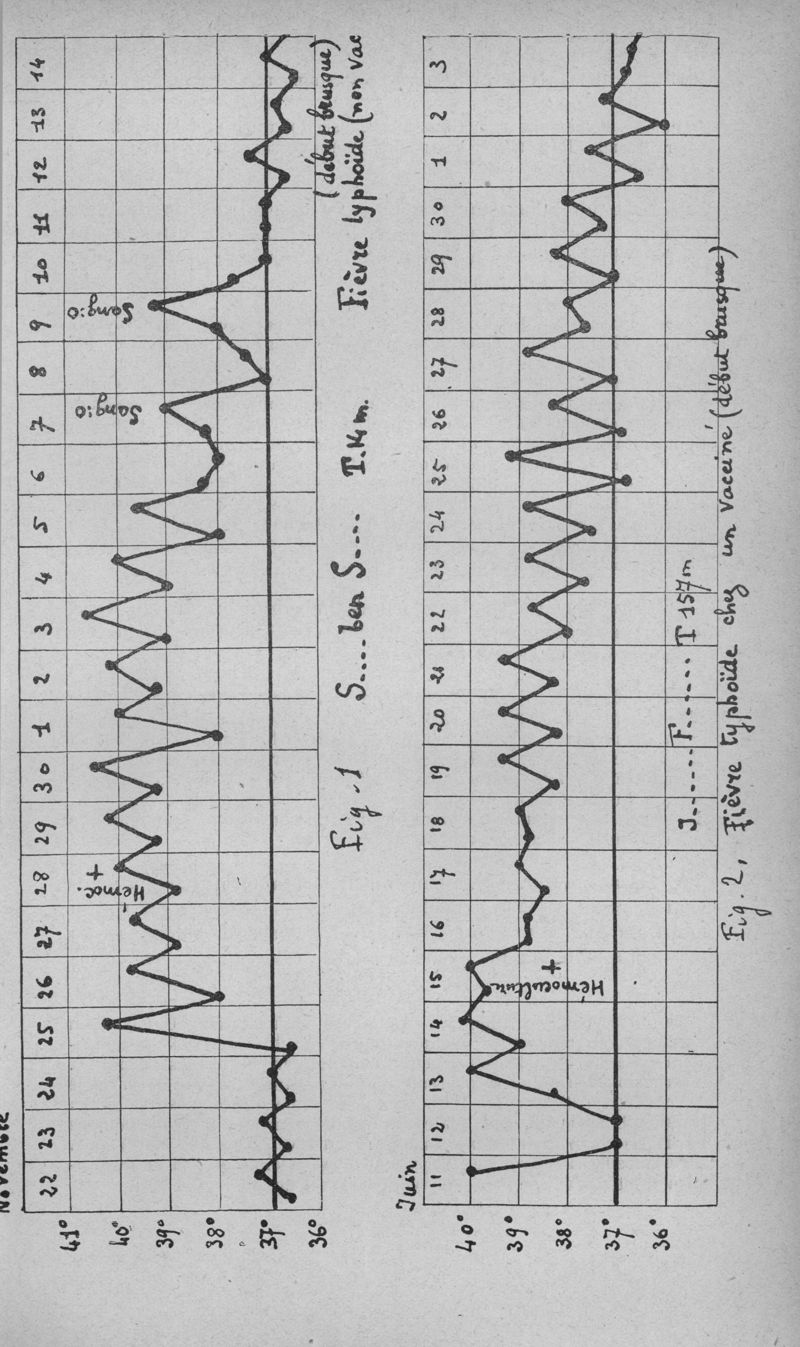 Novembre
22 23 24 25 26 27 28 29 30 1 2 3 4 5 6 7 8 9 10 11 12 13 14
41°
40°
39°
38°
37°
36°
Hémoc.
+
Sang:0
Sang:0
Fig. 1 S....ben S.... T.14 m. Fièvre typhoïde (non vac
(début brusque)
Juin
11 12 13 14 15 16 17 18 19 20 21 22 23 24 25 26 27 28 29 30 1 2 3
40°
39°
38°
37°
36°
Hémoculture
+
J......F...... T 157 m
Fig. 2, Fièvre typhoïde chez un vacciné (début brusque)